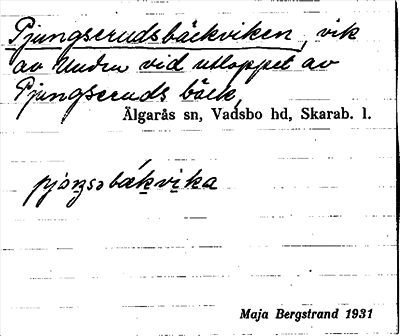 Pjungserudsbäckviken, vik
av Unden vid utloppet av
Pjungseruds bäck,
Älgarås sn, Vadsbo hd, Skarab. l.
pjoŋsəbækvika
Maja Bergstrand 1931